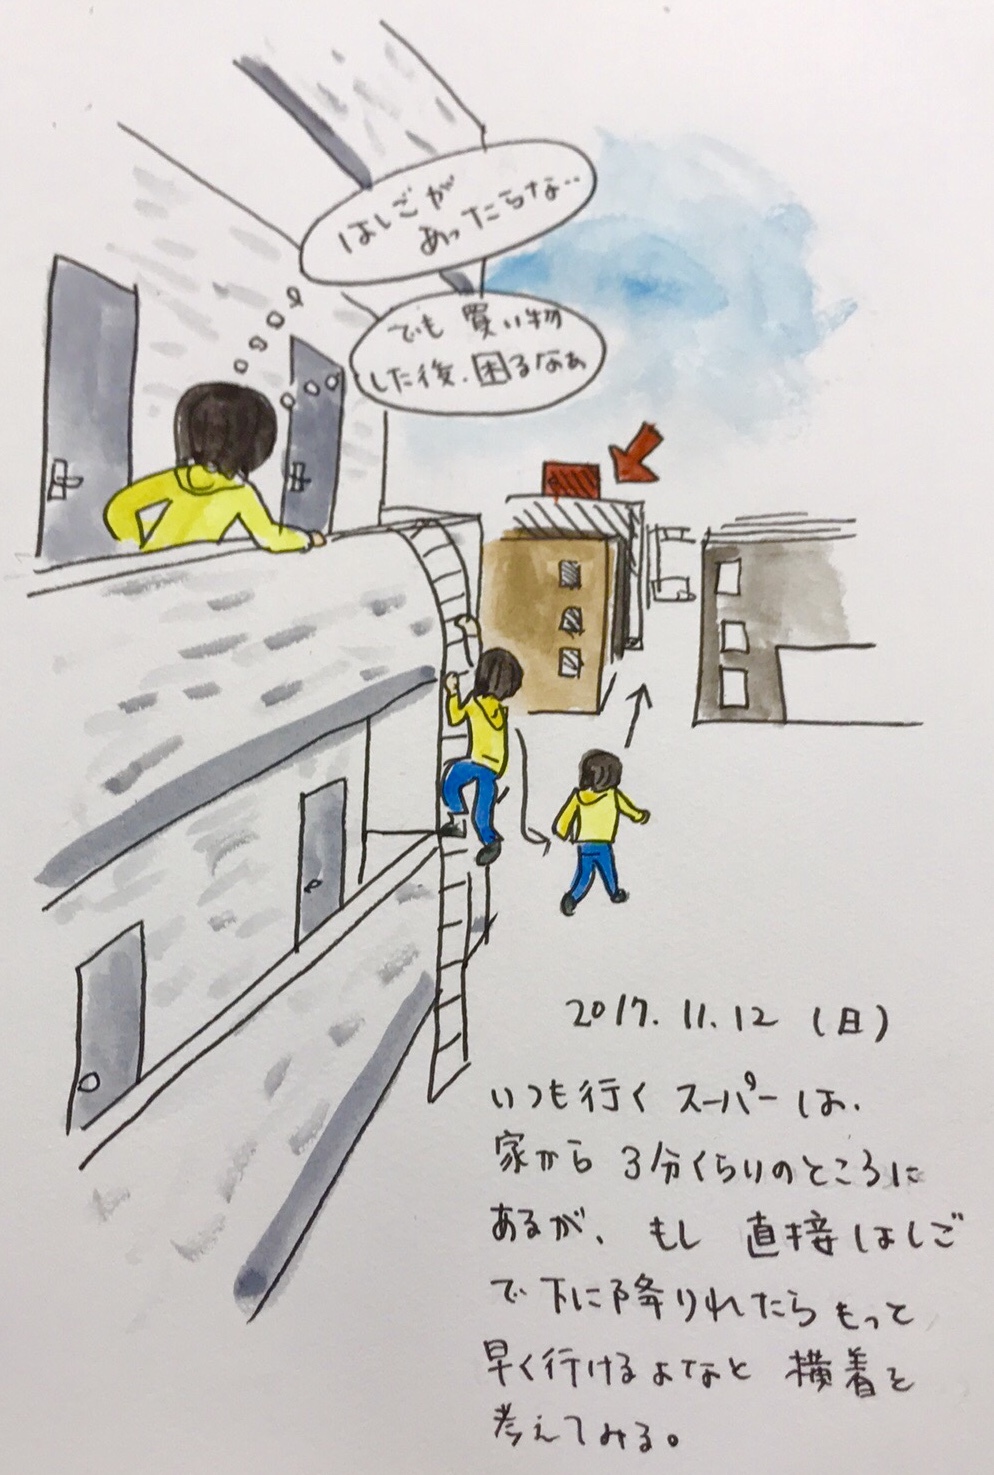 はしごが
あったらな…
でも 買い物
した後、困るなぁ
2017. 11. 12 (日)
いつも行く スーパーは、
家から 3分くらいのところに
あるが、もし 直接はしご
で下に降りれたらもっと
早く行けるよなと 横着を
考えてみる。